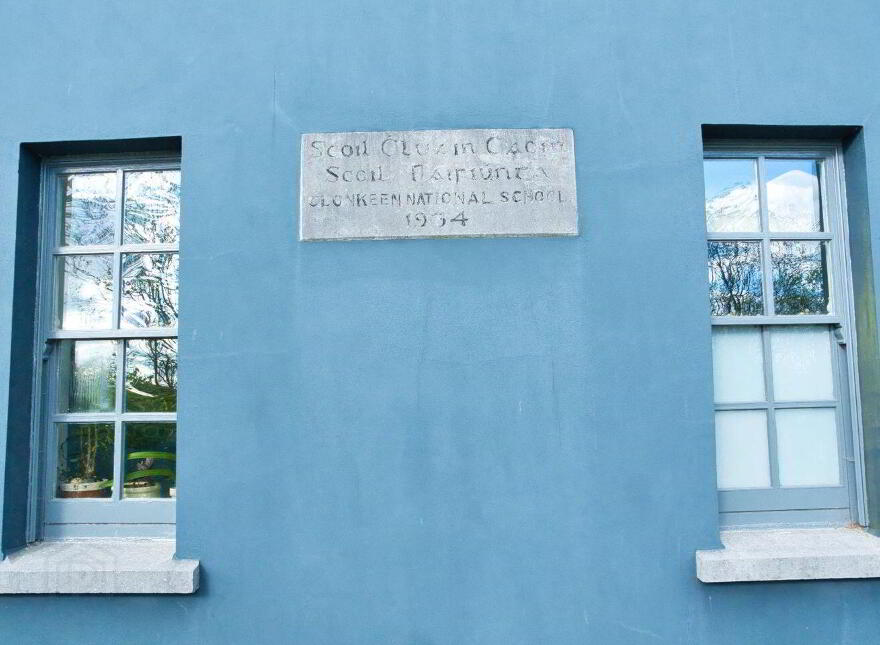 Scoil Cluain Caoin
Scoil Náisiúnta
CLONKEEN NATIONAL SCHOOL
1934